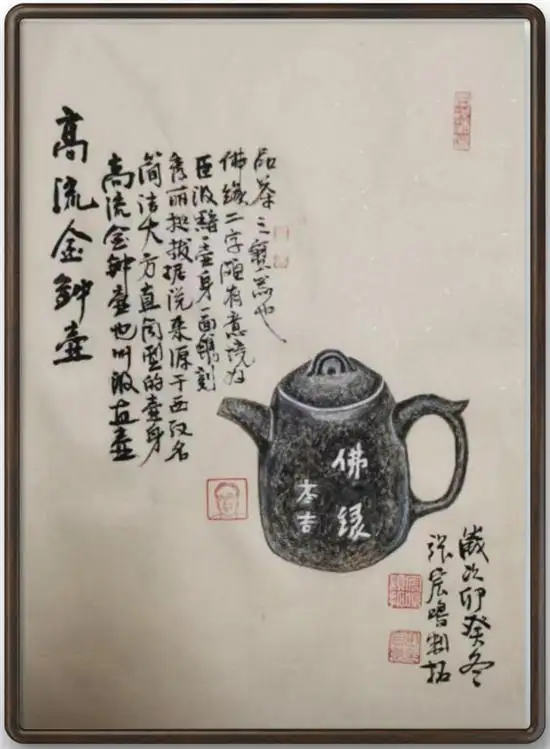 高流金钟壶
高流金钟壶也叫汲直壶
简洁大方直筒型的壶身
秀丽挺拔据说来源于西汉名
臣汲黯壶身一面镌刻
佛缘二字颇有意境为
品茶之宝器也
佛缘
本吉
岁次卯癸冬
张制拓